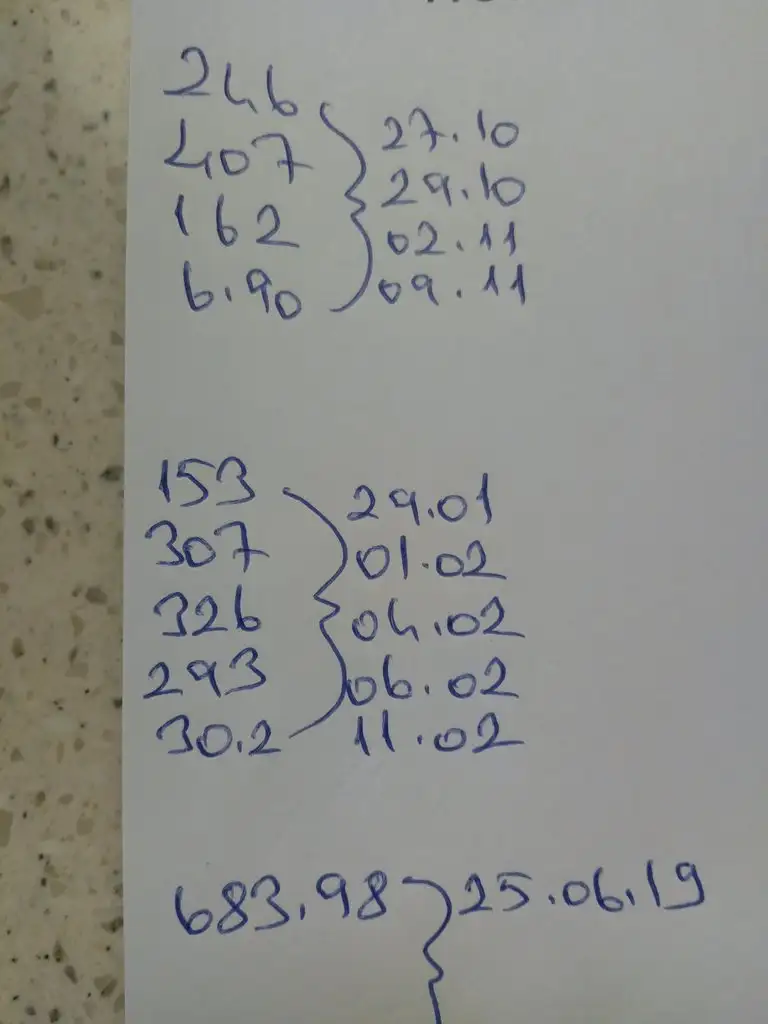 246
407
162
6.90
27.10
29.10
02.11
09.11
153
307
326
293
30.2
29.01
01.02
04.02
06.02
11.02
683.98 25.06.19